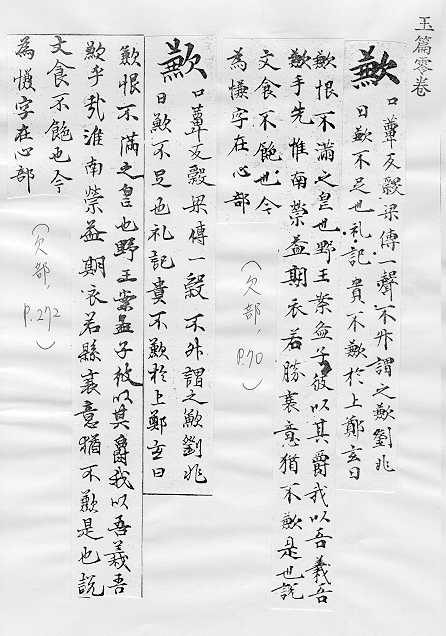 玉篇零卷
歉 口蕈反穀梁傳一聲不升謂之歉劉兆
曰歉不足也礼記貴不歉於上鄭玄曰
歉恨不滿之皇也野王案孟子彼以其爵我以吾義吾
歉手先惟南榮益期衣若勝裏意猶不歉是也説
文食不飽也今
為慊字在心部
(欠部, p.70)
歉 口蕈反穀梁傳一穀不升謂之歉劉兆
曰歉不足也礼記貴不歉於上鄭玄曰
歉恨不滿之皇也野王案孟子彼以其爵我以吾義吾
歉乎哉淮南榮益期衣若縣衰意猶不歉是也説
文食不飽也今
為慊字在心部
(欠部, p.272)